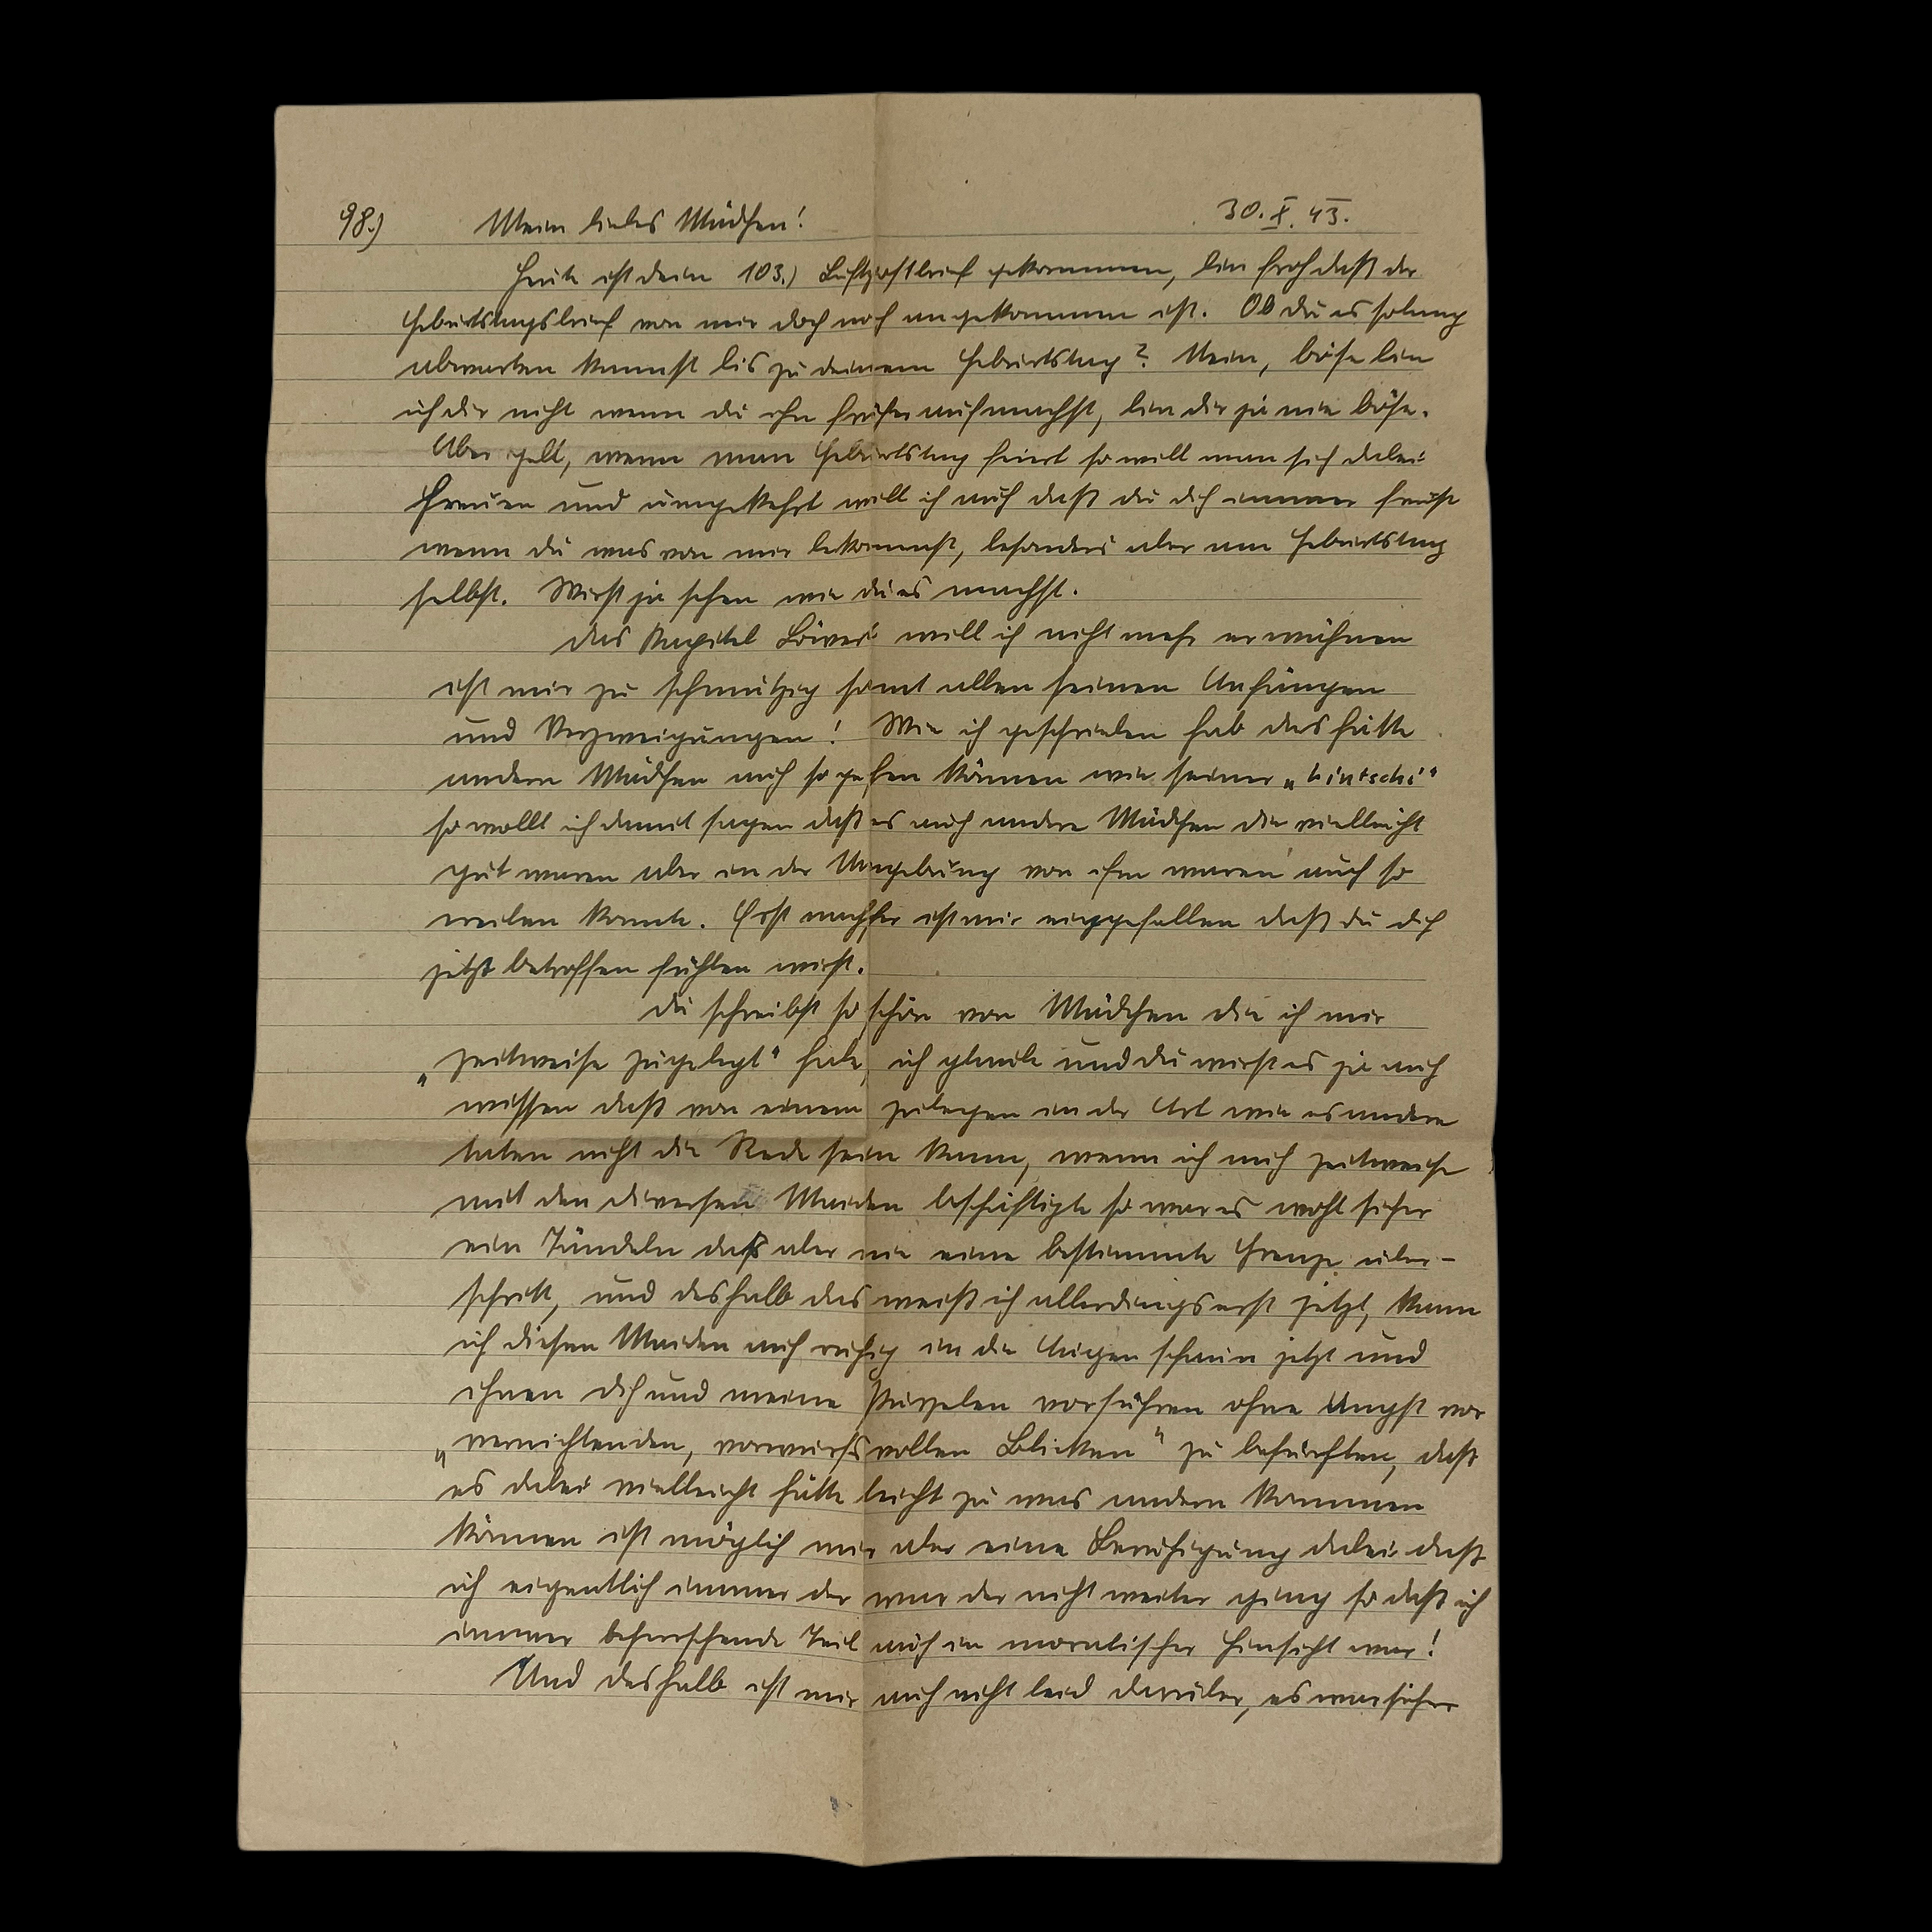 98.) Mein liebes Mädchen! 30. X. 43.
Heute ist dein 103.) Luftpostbrief gekommen, bin froh daß der
Geburtstagsbrief von mir doch noch angekommen ist. Ob du es solang
abwarten kannst bis zu deinem Geburtstag? Nein, böse bin
ich dir nicht wenn du ihn früher aufmachst, bin dir ja nie böse.
Aber gelt, wenn man Geburtstag feiert so will man sich dabei
freuen und umgekehrt will ich auch daß du dich immer freust
wenn du was von mir bekommst, besonders aber am Geburtstag
selbst. Wirst ja sehen wie du es machst.
Das Kapitel will ich nicht mehr erwähnen
ist mir zu schmutzig samt allen seinen Anhängen
und Verzweigungen! Wie ich geschrieben hab das hätte
andern Mädchen auch so gehen können wie seiner „Lintschi"
so wollt ich damit sagen daß es auch andere Mädchen die vielleicht
gut waren aber in der Umgebung von ihm waren auch so
werden konnte. Erst nachher ist mir eingefallen daß du dich
jetzt betroffen fühlen wirst.
Du schreibst so schön von Mädchen die ich mir
„zeitweise zugelegt" habe, ich glaube und du wirst es ja auch
wissen daß von einem zulegen in der Art wie es andere
taten nicht die Rede sein kann, wenn ich mich zeitweise
mit den diversen Maiden beschäftigte so war es wohl sicher
ein Tändeln daß aber nie eine bestimmte Grenze über-
schritt, und deshalb das weiß ich allerdings erst jetzt, kann
ich diesen Maiden auch ruhig in die Augen schaun jetzt und
ihnen dich und meine Purzelen vorführen ohne Angst vor
„vernichtenden, vorwurfsvollen Blicken" zu befürchten, daß
es dabei vielleicht hätte leicht zu was andern kommen
können ist möglich mir aber eine Beruhigung dabei daß
ich eigentlich immer der war der nicht weiter ging so daß ich
immer beherrschende Teil auch in moralischer Hinsicht war!
Und deshalb ist mir auch nicht leid darüber, es war sicher